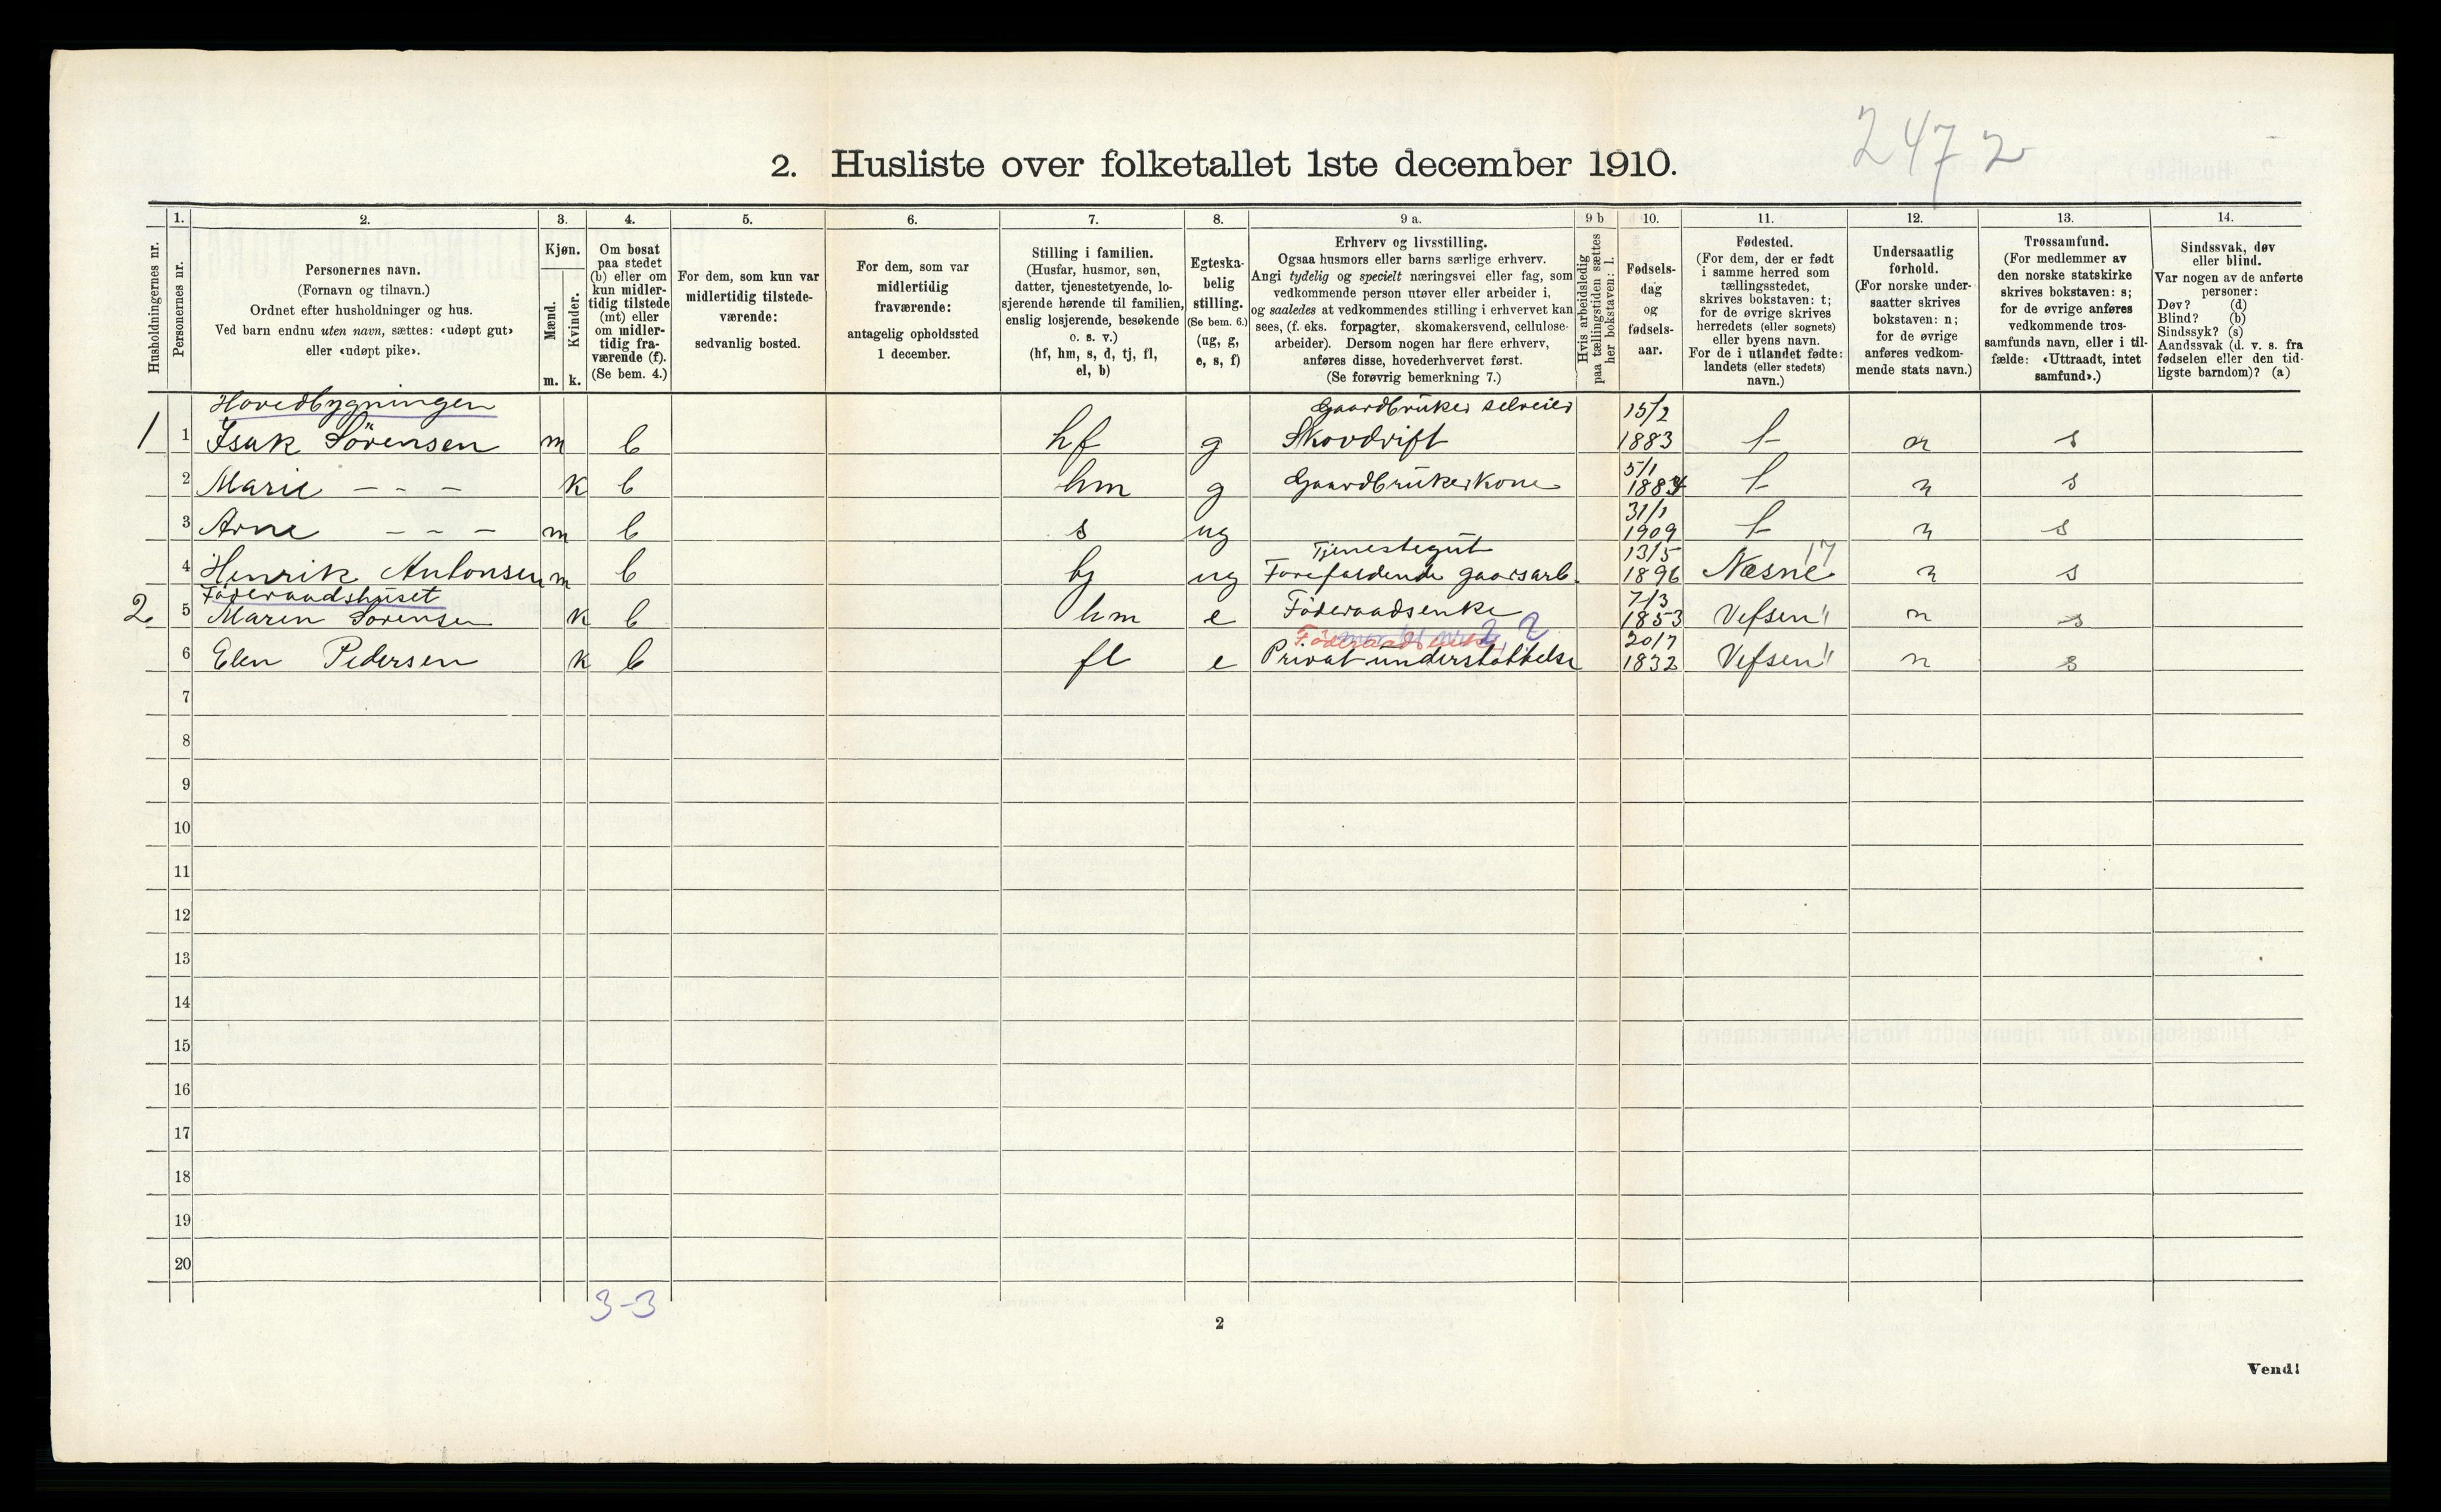 2472
2. Husliste over folketallet 1ste december 1910.
1. 2. 3. 4. 5. 6. 7. 8. 9 a. 9 b 10. 11. 12. 13. 14.
Husholdningernes nr.
Personernes nr.
Personernes navn.
(Fornavn og tilnavn.)
Ordnet efter husholdninger og hus.
Ved barn endnu uten navn, sættes: «udøpt gut»
eller «udøpt pike».
Kjøn.
Mænd.
Kvinder.
m. k.
Om bosat
paa stedet
(b) eller om
kun midler-
tidig tilstede
(mt) eller
om midler-
tidig fra-
værende (f).
(Se bem. 4.)
For dem, som kun var
midlertidig tilstede-
værende:
sedvanlig bosted.
For dem, som var
midlertidig
fraværende:
antagelig opholdssted
1 december.
Stilling i familien.
(Husfar, husmor, søn,
datter, tjenestetyende, lo-
sjerende hørende til familien,
enslig losjerende, besøkende
o. s. v.)
(hf, hm, s, d, tj, fl,
el, b)
Egteska-
belig
stilling.
(Se bem. 6.)
(ug, g,
e, s, f)
Erhverv og livsstilling.
Ogsaa husmors eller barns særlige erhverv.
Angi tydelig og specielt næringsvei eller fag, som
vedkommende person utøver eller arbeider i,
og saaledes at vedkommendes stilling i erhvervet kan
sees, (f. eks. forpagter, skomakersvend, cellulose-
arbeider). Dersom nogen har flere erhverv,
anføres disse, hovederhvervet først.
(Se forøvrig bemerkning 7.)
Hvis arbeidsledig
paa tællingstiden sættes
her bokstaven: l.
Fødsels-
dag
og
fødsels-
aar.
Fødested.
(For dem, der er født
i samme herred som
tællingsstedet,
skrives bokstaven: t;
for de øvrige skrives
herredets (eller sognets)
eller byens navn.
For de i utlandet fødte:
landets (eller stedets)
navn.)
Undersaatlig
forhold.
(For norske under-
saatter skrives
bokstaven: n;
for de øvrige
anføres vedkom-
mende stats navn.)
Trossamfund.
(For medlemmer av
den norske statskirke
skrives bokstaven: s;
for de øvrige anføres
vedkommende tros-
samfunds navn, eller i til-
fælde: «Uttraadt, intet
samfund».)
Sindssvak, døv
eller blind.
Var nogen av de anførte
personer:
Døv? (d)
Blind? (b)
Sindssyk? (s)
Aandssvak (d. v. s. fra
fødselen eller den tid-
ligste barndom)? (a)
Hovedbygningen Gaardbruker selveier 15/2
1 1 Isak Sörensen m b hf g Skovdrift 1883 t n s
5/1
2 Marie - - - k b hm g Gaardbrukerkone 1884 t n s
31/1
3 Arne - - - m b s ug 1909 t n s
Tjenestegut 13/5 17
4 Henrik Antonsen m b tj ug Forefaldende gaarsarb. 1896 Næsne n s
Föderaadshuset 7/3
2 5 Maren Sorensen k b hm e Föderaadsenke 1853 Vefsen " n s
2 20/7
6 Elen Pedersen k b fl e Privat understöttelse 1832 Vefsen " n s
7
8
9
10
11
12
13
14
15
16
17
18
19
20
3-3
2
Vend!